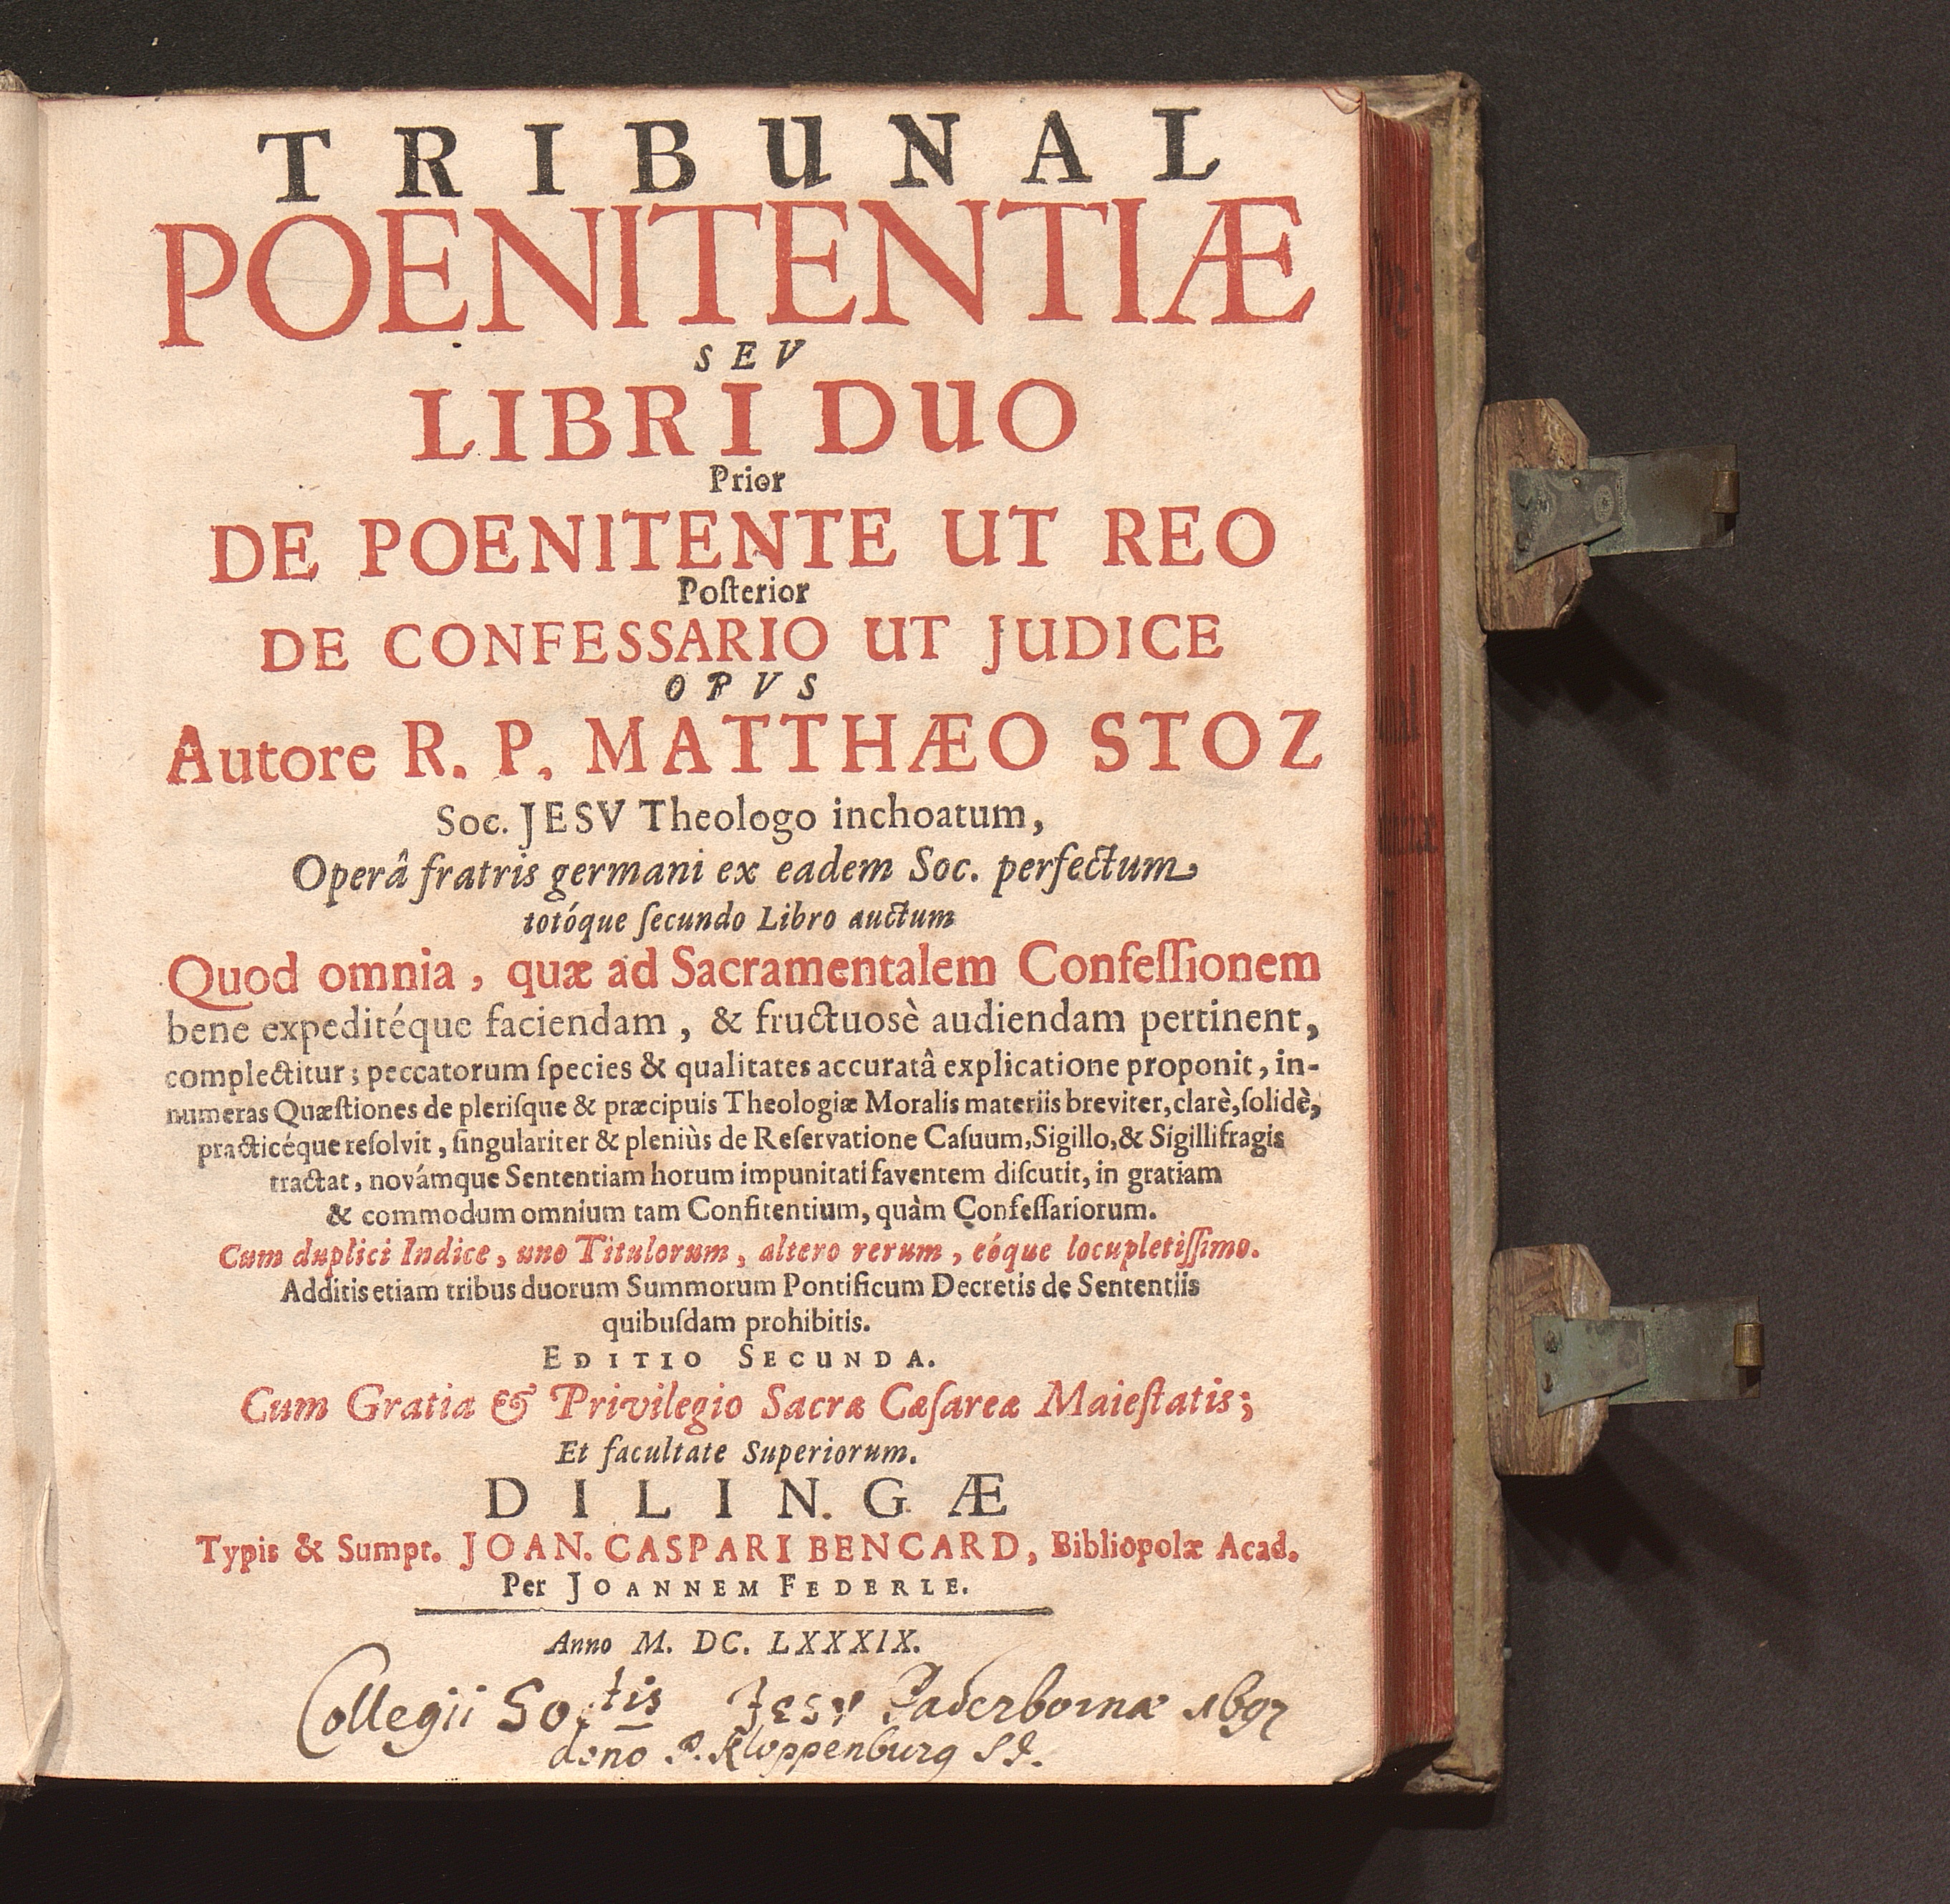 TRIBUNAL
POENITENTIÆ
SEV
LIBRI DUO
Prior
DE POENITENTE UT REO
Poſterior
DE CONFESSARIO UT JUDICE
OPVS
Autore R. P. MATTHÆO STOZ
Soc. JESV Theologo inchoatum,
Operâ fratris germani ex eadem Soc. perfectum
totóque ſecundo Libro auctum
Quod omnia, quæ ad Sacramentalem Confeſſionem
bene expeditéque faciendam, & fructuosè audiendam pertinent,
complectitur; peccatorum ſpecies & qualitates accuratâ explicatione proponit, in-
numeras Quæſtiones de pleriſque & præcipuis Theologiæ Moralis materiis breviter, clarè, ſolidè,
practicéque reſolvit, ſingulariter & pleniùs de Reſervatione Caſuum, Sigillo, & Sigillifragis
tractat, novámque Sententiam horum impunitati faventem diſcutit, in gratiam
& commodum omnium tam Confitentium, quàm Confeſſariorum.
Cum duplici Indice, uno Titulorum, altero rerum, eóque locupletiſſimo.
Additis etiam tribus duorum Summorum Pontificum Decretis de Sententiis
quibuſdam prohibitis.
EDITIO SECUNDA.
Cum Gratia & Privilegio Sacræ Cæſareæ Maieſtatis;
Et facultate Superiorum.
DILIN.G.Æ
Typis & Sumpt. JOAN. CASPARI BENCARD, Bibliopolæ Acad.
Per JOANNEM FEDERLE.
Anno M. DC. LXXXIX.
Collegii Soctis Jesv Paderbornæ 1697
dono P. Kloppenburg SJ.